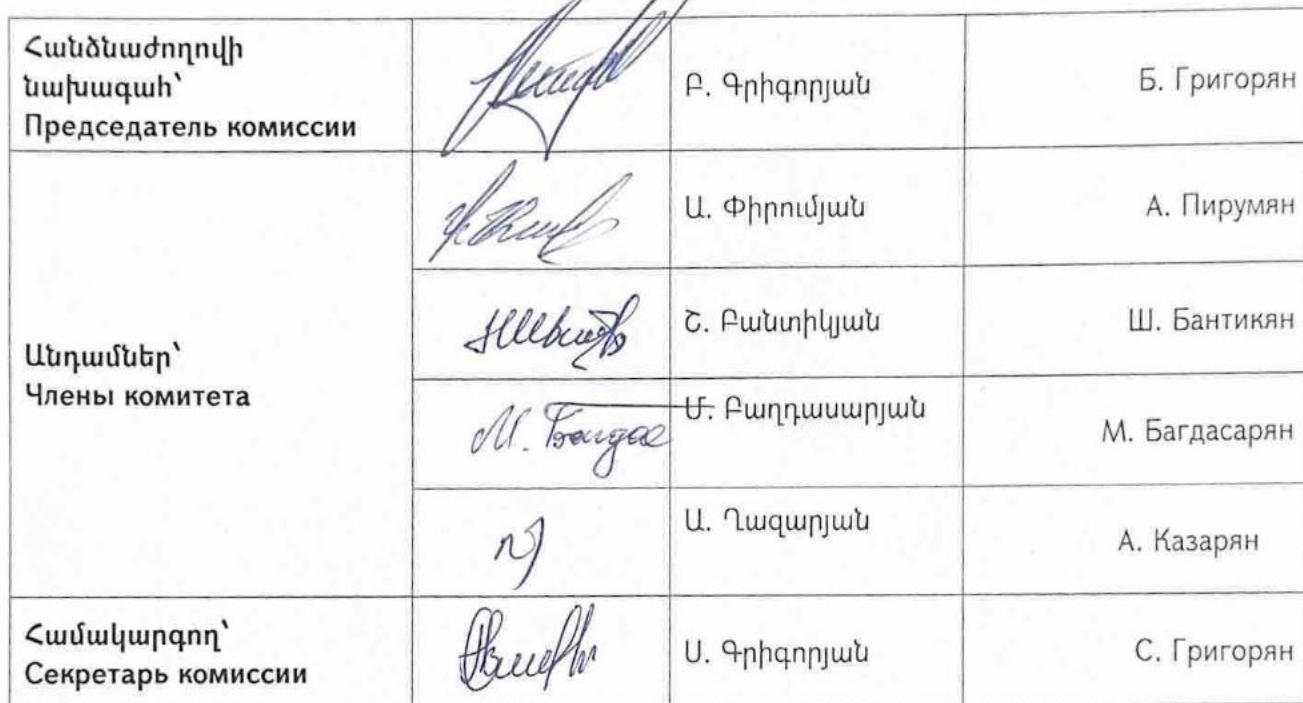 Հանձնաժողովի
նախագահ՝
Председатель комиссии
Բ. Գրիգորյան
Б. Григорян
Ա. Փիրումյան
А. Пирумян
Անդամներ՝
Члены комитета
Շ. Բանտիկյան
Ш. Бантикян
М. Багдас
Մ. Բաղդասարյան
М. Багдасарян
Ա. Ղազարյան
А. Казарян
Համակարգող՝
Секретарь комиссии
Ս. Գրիգորյան
С. Григорян